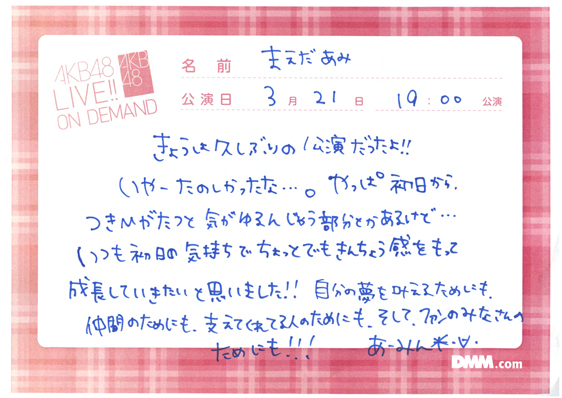 AKB48
LIVE!!
ON DEMAND
AKB
48
名 前 まえだあみ
公演日 3月21日 19:00 公演
きょうは久しぶりの公演だったよ!!
いやーたのしかったな…。やっぱ初日から、
つきひがたつと気がゆるんじゃう部分とかあるけど…
いつも初日の気持ちでちょっとでもきんちょう感をもって
成長していきたいと思いました!! 自分の夢を叶えるためにも、
仲間のためにも、支えてくれてる人のためにも、そして、ファンのみなさんの
ためにも!!! あーみん
DMM.com